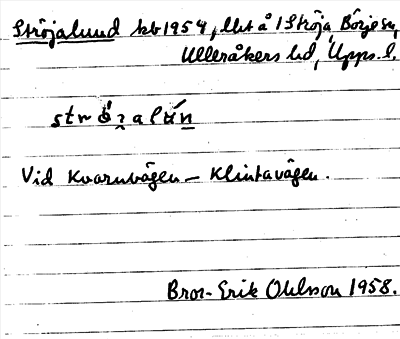 Ströjalund kb 1954, lht å 1 Ströja, Börje sn,
Ulleråkers hd, Upps. l.
Vid Kvarnvägen – Klintavägen.
Bror-Erik Ohlsson 1958.